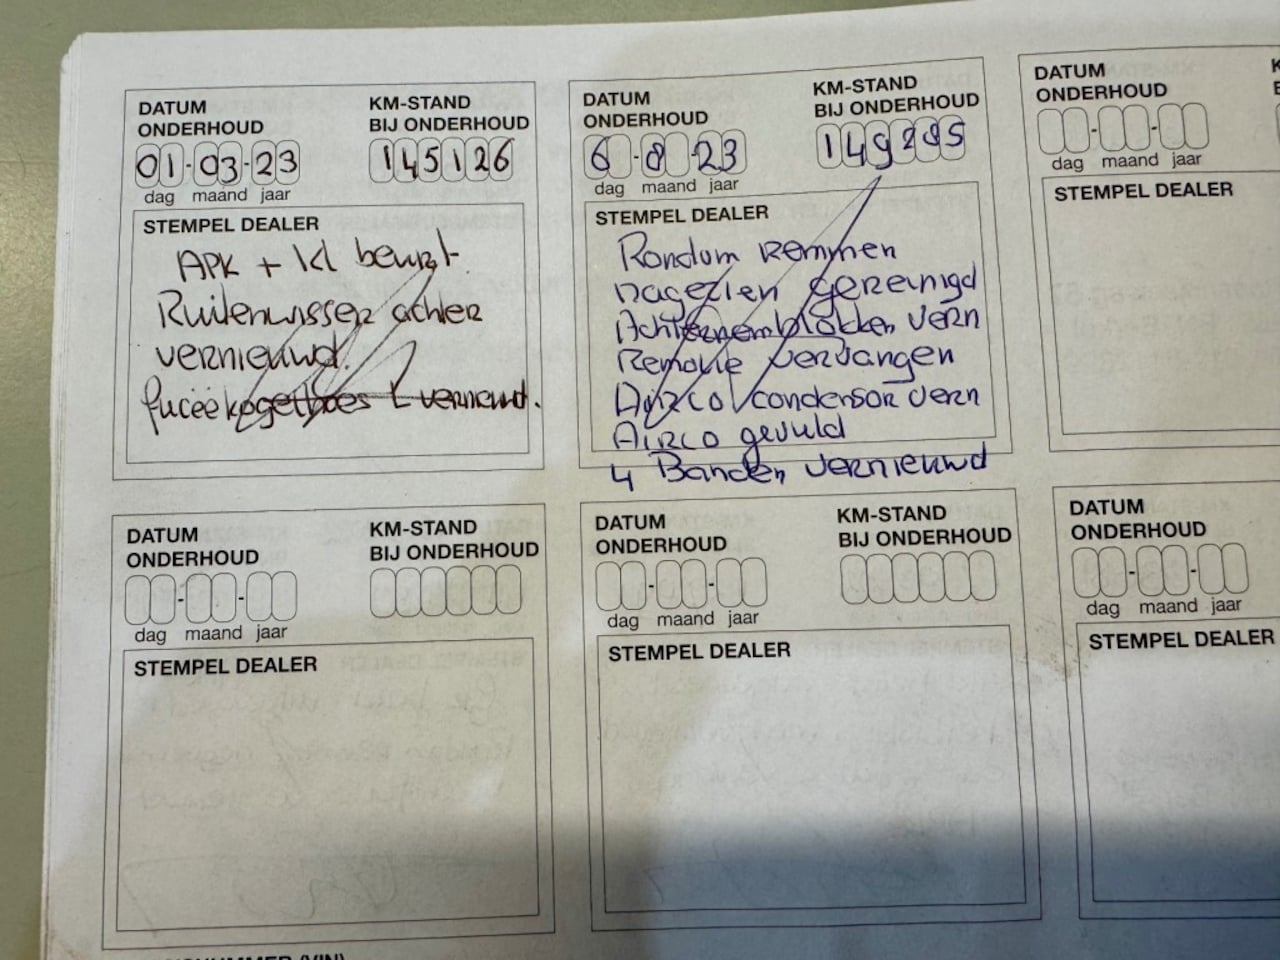 DATUM
ONDERHOUD
01-03-23
dag maand jaar
KM-STAND
BIJ ONDERHOUD
145126
STEMPEL DEALER
APK + Kl beurt.
Ruitenwisser achter
vernieuwd.
fuseekogelhoes L vernieuwd.
DATUM
ONDERHOUD
6-8-23
dag maand jaar
KM-STAND
BIJ ONDERHOUD
STEMPEL DEALER
Rondum remmen
nagezien gereinigd
Achterremblokken vern
Remolie vervangen
Airco condensor vern
Airco gevuld
4 Banden vernieuwd
DATUM
ONDERHOUD
dag maand jaar
STEMPEL DEALER
DATUM
ONDERHOUD
dag maand jaar
KM-STAND
BIJ ONDERHOUD
STEMPEL DEALER
DATUM
ONDERHOUD
dag maand jaar
KM-STAND
BIJ ONDERHOUD
STEMPEL DEALER
DATUM
ONDERHOUD
dag maand jaar
STEMPEL DEALER